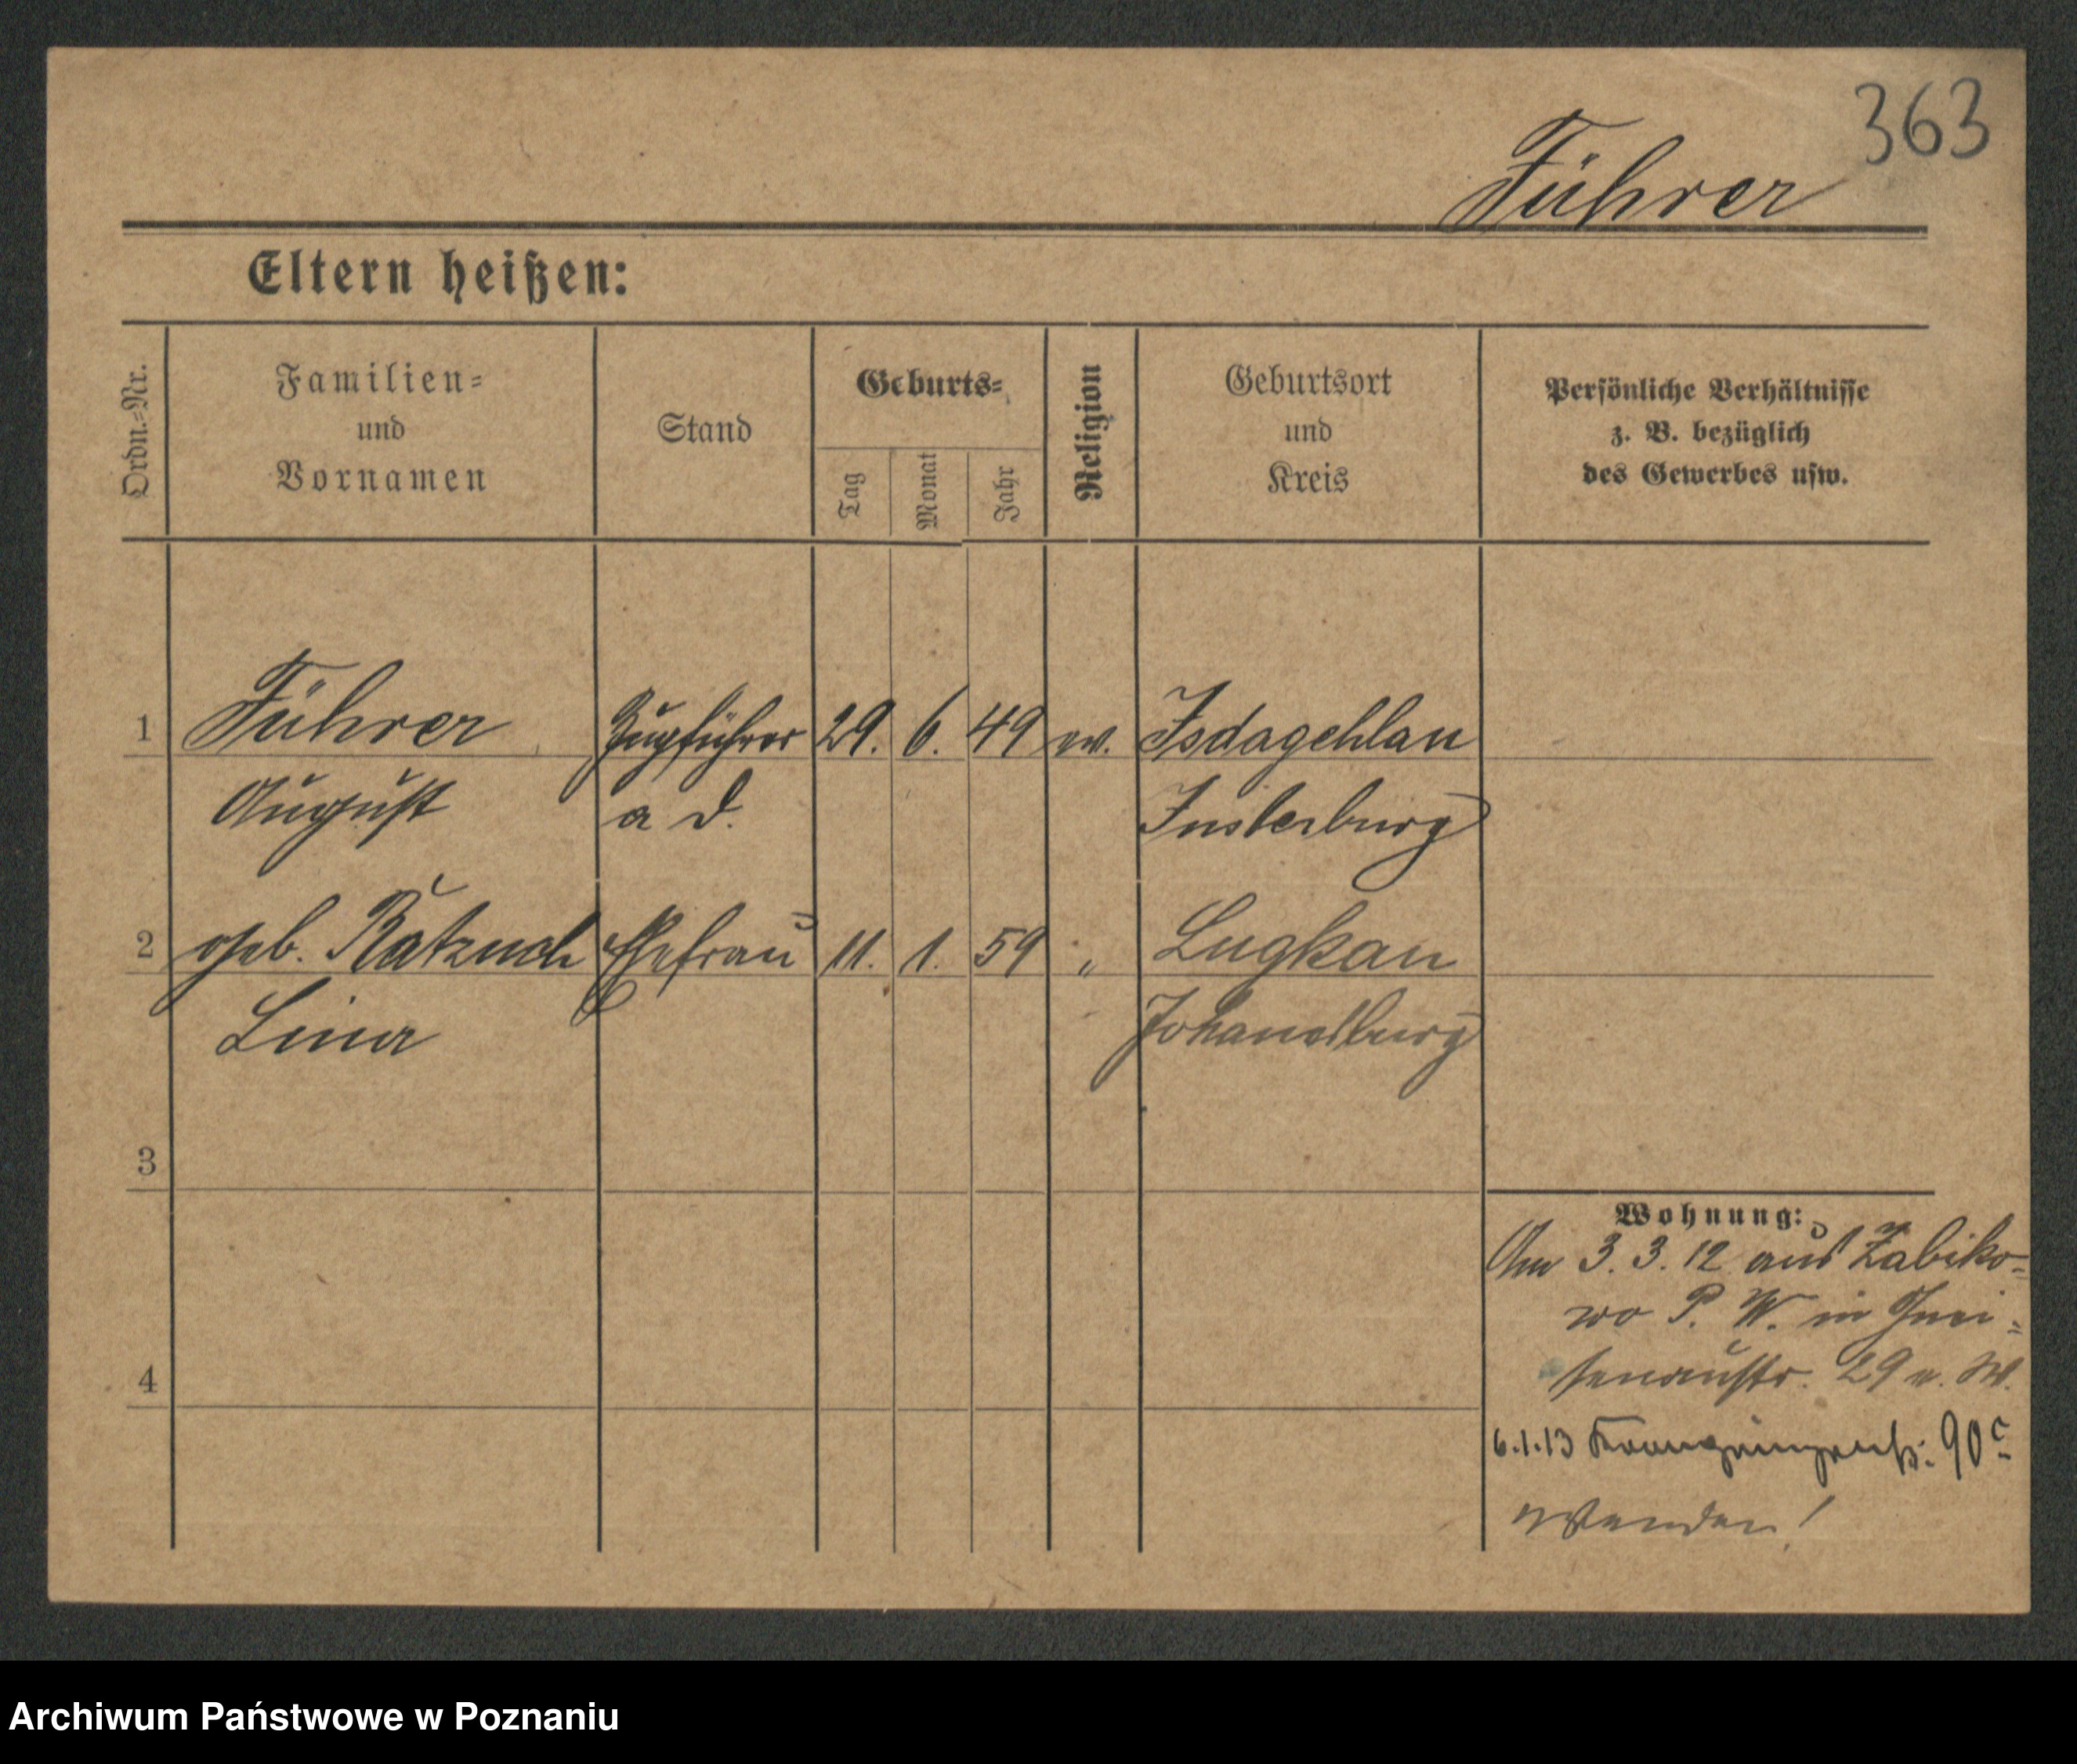 363
Führer
Eltern heißen:
Ordn.-Nr.
Familien-
und
Vornamen
Stand
Geburts-
Tag
Monat
Jahr
Religion
Geburtsort
und
Kreis
Persönliche Verhältnisse
z. B. bezüglich
des Gewerbes usw.
1 Führer Zugführer 29. 6. 49 ev. Isdagehlan
August a D. Insterburg
2 geb. Ratzuch Ehefrau 11. 1. 59 " Lugkau
Lina Johanisburg
3
Wohnung:
Am 3. 3. 12 aus Zabiko-
wo P. W. in Gnei-
4 senaustr. 29 a. W.
6.1.13 90
wenden!
Archiwum Państwowe w Poznaniu